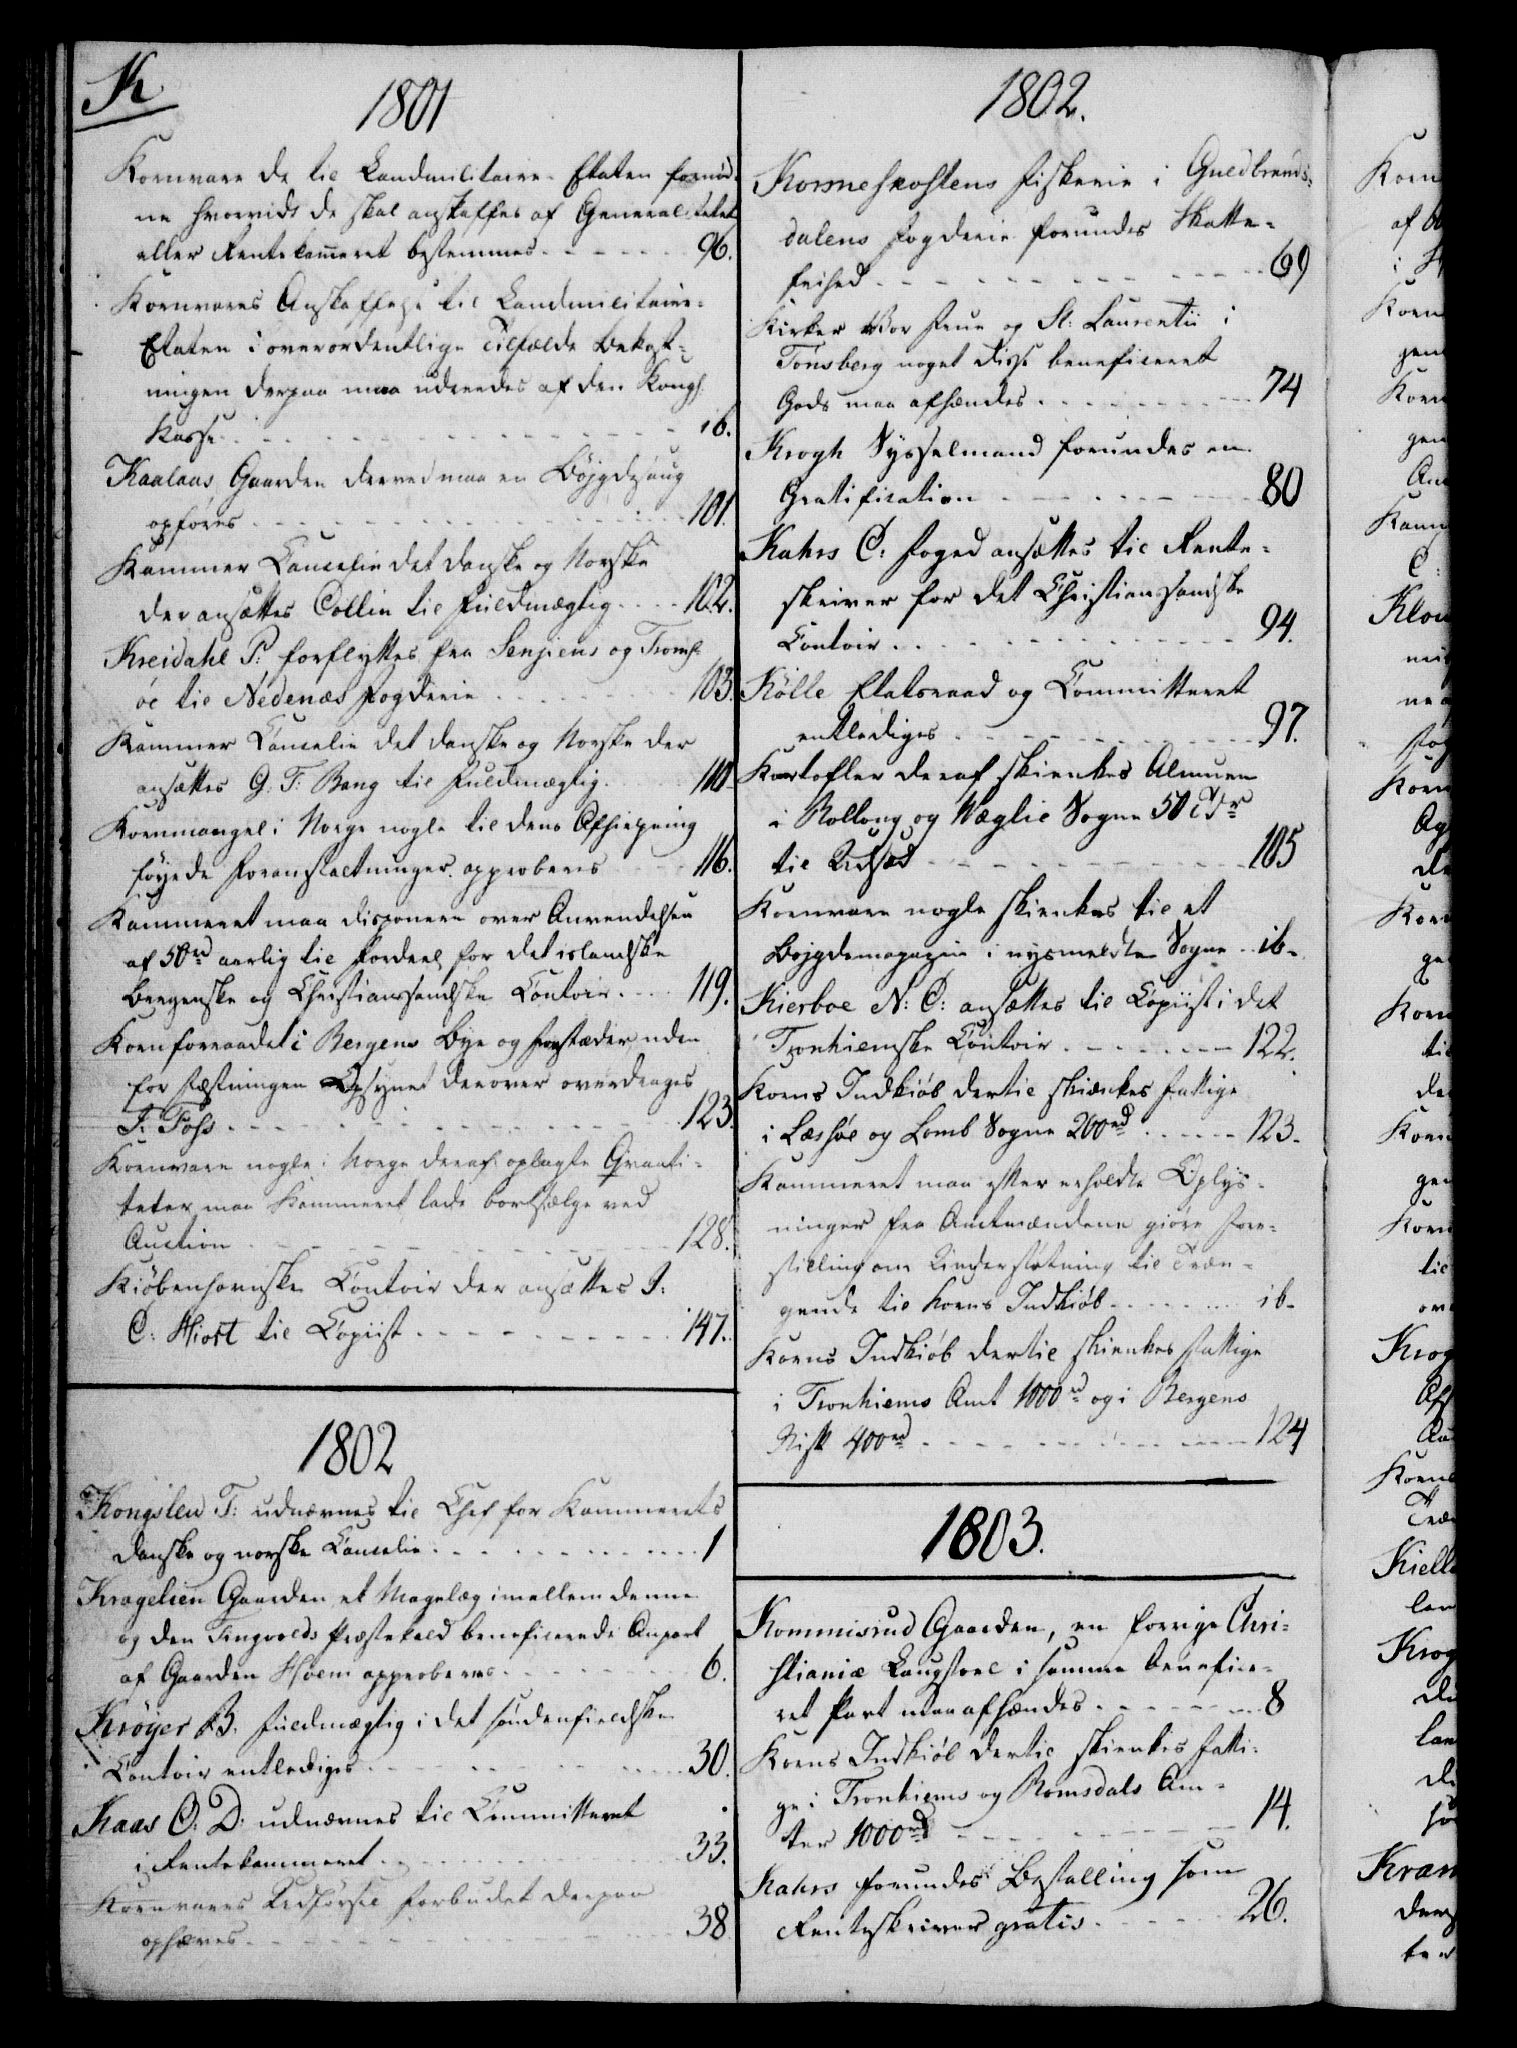 K
1801
Kornvare de til Landmilitaire-Etaten fornød-
ne hvorvidt de skal anskaffes af Generalitetet
eller Rentekam̄eret bestemmes - - - 96.
Kornvares Anskaffelse til Landmilitaire-
Etaten i overordentlige Tilfælde Bekost-
ningen derpaa maa udredes af den Kongl.
Kasse - - - ib.
Kaalaas, Gaarden derved maa en Bøjgdesaug
opføres - - - 101.
Kammer Cancelie det danske og Norske
der ansættes Collin til Fuldmægtig - - - 102.
Kreidahl P: forflyttes fra Senjens og Troms-
öe til Nedenæs Fogderie - - - 103.
Kammer Cancelie det danske og Norske der
ansættes G. F. Bang til Fuldmægtig - - - 110
Kornmangel i Norge nogle til dens Afhielpning
føyede Foranstaltninger approberes - - - 116.
Kammeret maa disponere over Anvendelsen
af 50 rd aarlig til Fordeel for det islandske
Bergenske og Christianssandske Contoir - - - 119.
Kornforraadet i Bergens Bye og Forstæder uden
for Fæstningen Opsynet derover overdrages
J. Foss - - - 123.
Kornvare nogle i Norge deraf oplagte Qvanti-
teter maa Kammeret lade bortsælge ved
Auction - - - 128.
Kiöbenhavnske Contoir der ansættes J:
C: Hiort til Copiist - - - 147.
1802
Kongslew T: udnævnes til Chef for Kammerets
danske og norske Cancelie - - - 1
Kragelien Gaarden et Magelæg imellem denne
og den Tingvolds Præstekald beneficerede Anpart
af Gaarden Hoem approberes - - - 6.
Krøyer B. Fuldmægtig i det søndenfieldske
Contoir entlediges - - - 30.
Kaas O. D. udnævnes til Committeret
i Rentekammeret - - - 33.
Kornvares Udførsel Forbudet derpaa
ophæves - - - 38
1802.
Kornehskostens Fiskerie i Guldbrands-
dalens Fogderie forundes Skatte-
frihed - - - 69
Kirker Vor Frue og St: Laurentii i
Tønsberg noget disse beneficeret
Gods maa afhændes - - - 74
Krogh Sysselmand forundes en
Gratification - - - 80
Kahrs C: Foged ansættes til Rente-
skriver for det Christianssandske
Contoir - - - 94.
Kölle Etatsraad og Committeret
entlediges - - - 97.
Kartofler deraf skienkes Almuen
i Rollong og Wæglie Sogne 50 Tdr
til Udsæd - - - 105
Kornvare nogle skienkes til et
Bøjgdemagazin i nysmeldte Sogne - - ib.
Kierboe N: C: ansættes til Copiist i det
Tronhiemske Contoir - - - 122.
Korns Indkiöb dertil skiænkes Fattige
i Læssøe og Lomb Sogne 200 rd - - - 123.
Kammeret maa efter erholdte Oplys-
ninger fra Amtmændene giøre Fore-
stilling om Understøtning til Træn-
gende til Korns Indkiöb - - - ib.
Korns Indkiöb dertil skienkes Fattige
i Tronhiems Amt 1000 rd og i Bergens
Stift 400 rd - - - 124
1803.
Kommisrud Gaarden, en forrige Chri-
stianiæ Laugstoel i samme benefice-
ret Part maa afhændes - - - 8
Korns Indkiöb dertil skienkes Fatti-
ge i Tronhiems og Romsdals Am-
ter 1000 rd - - - 14.
Kahrs forundes Bestalling som
Renteskriver gratis - - - 26.